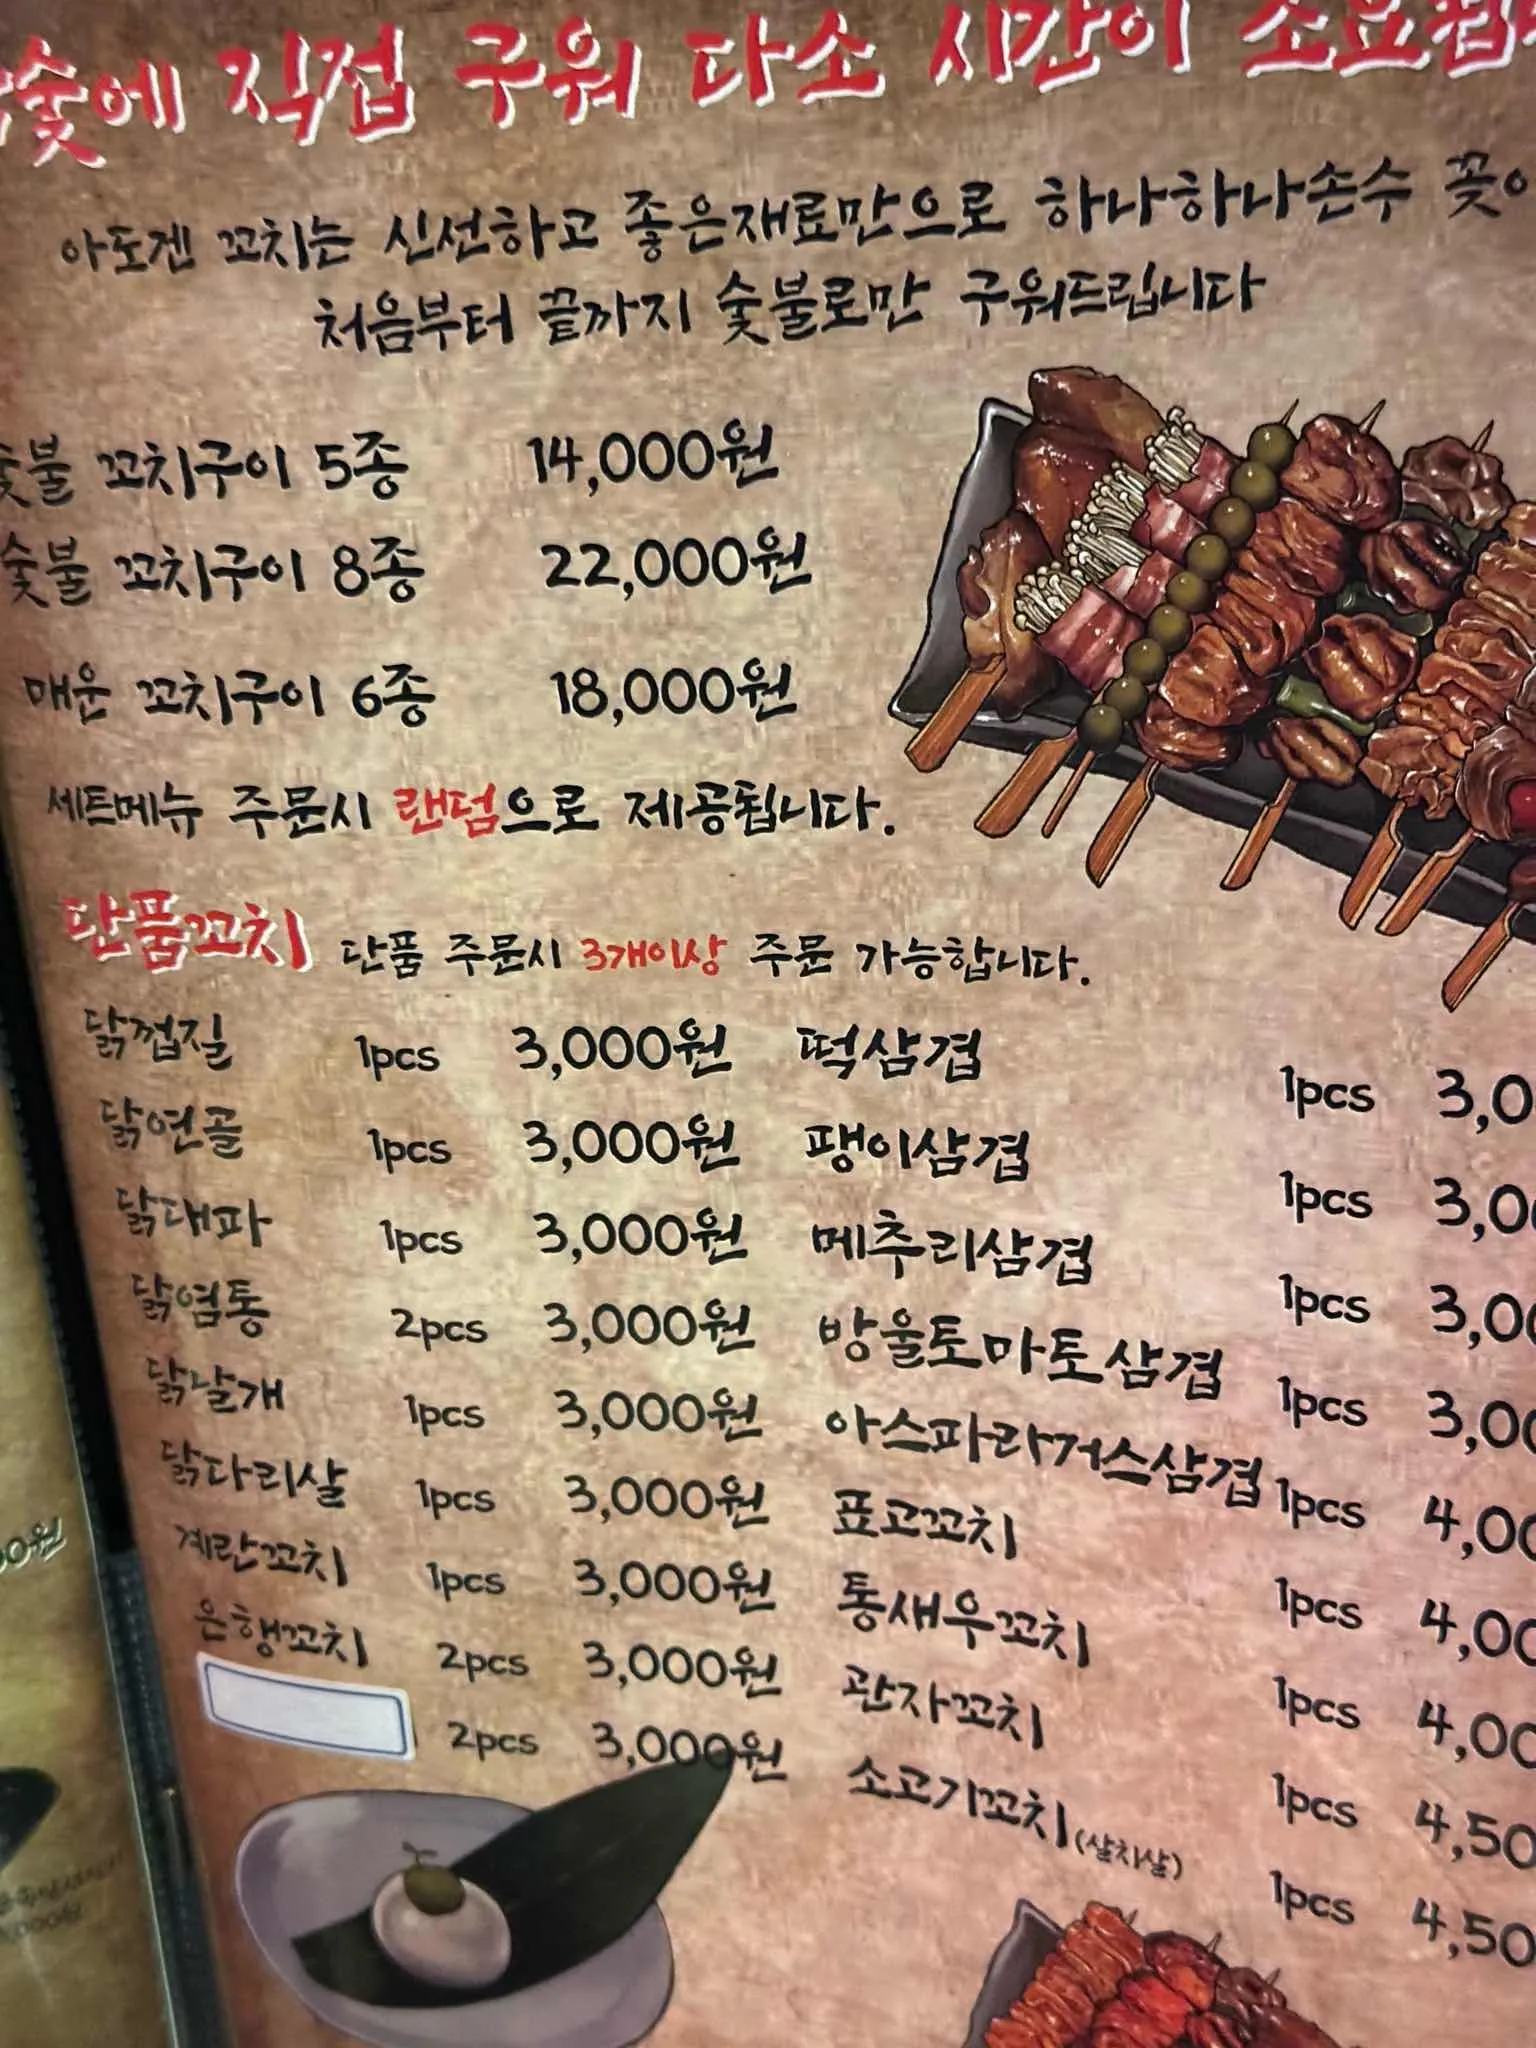 숯에 직접 구워 다소 시간이 소요됩
아도겐 꼬치는 신선하고 좋은재료만으로 하나하나손수 꽂
처음부터 끝까지 숯불로만 구워드립니다
숯불 꼬치구이 5종 14,000원
숯불 꼬치구이 8종 22,000원
매운 꼬치구이 6종 18,000원
세트메뉴 주문시 랜덤으로 제공됩니다.
단품꼬치 단품 주문시 3개이상 주문 가능합니다.
닭껍질 1pcs 3,000원
닭연골 1pcs 3,000원
닭대파 1pcs 3,000원
닭염통 2pcs 3,000원
닭날개 1pcs 3,000원
닭다리살 1pcs 3,000원
계란꼬치 1pcs 3,000원
은행꼬치 2pcs 3,000원
2pcs 3,000원
떡삼겹 1pcs 3,0
팽이삼겹 1pcs 3,00
메추리삼겹 1pcs 3,00
방울토마토삼겹 1pcs 3,00
아스파라거스삼겹 1pcs 4,00
표고꼬치 1pcs 4,00
통새우꼬치 1pcs 4,00
관자꼬치 1pcs 4,50
소고기꼬치(살치살) 1pcs 4,50
00원